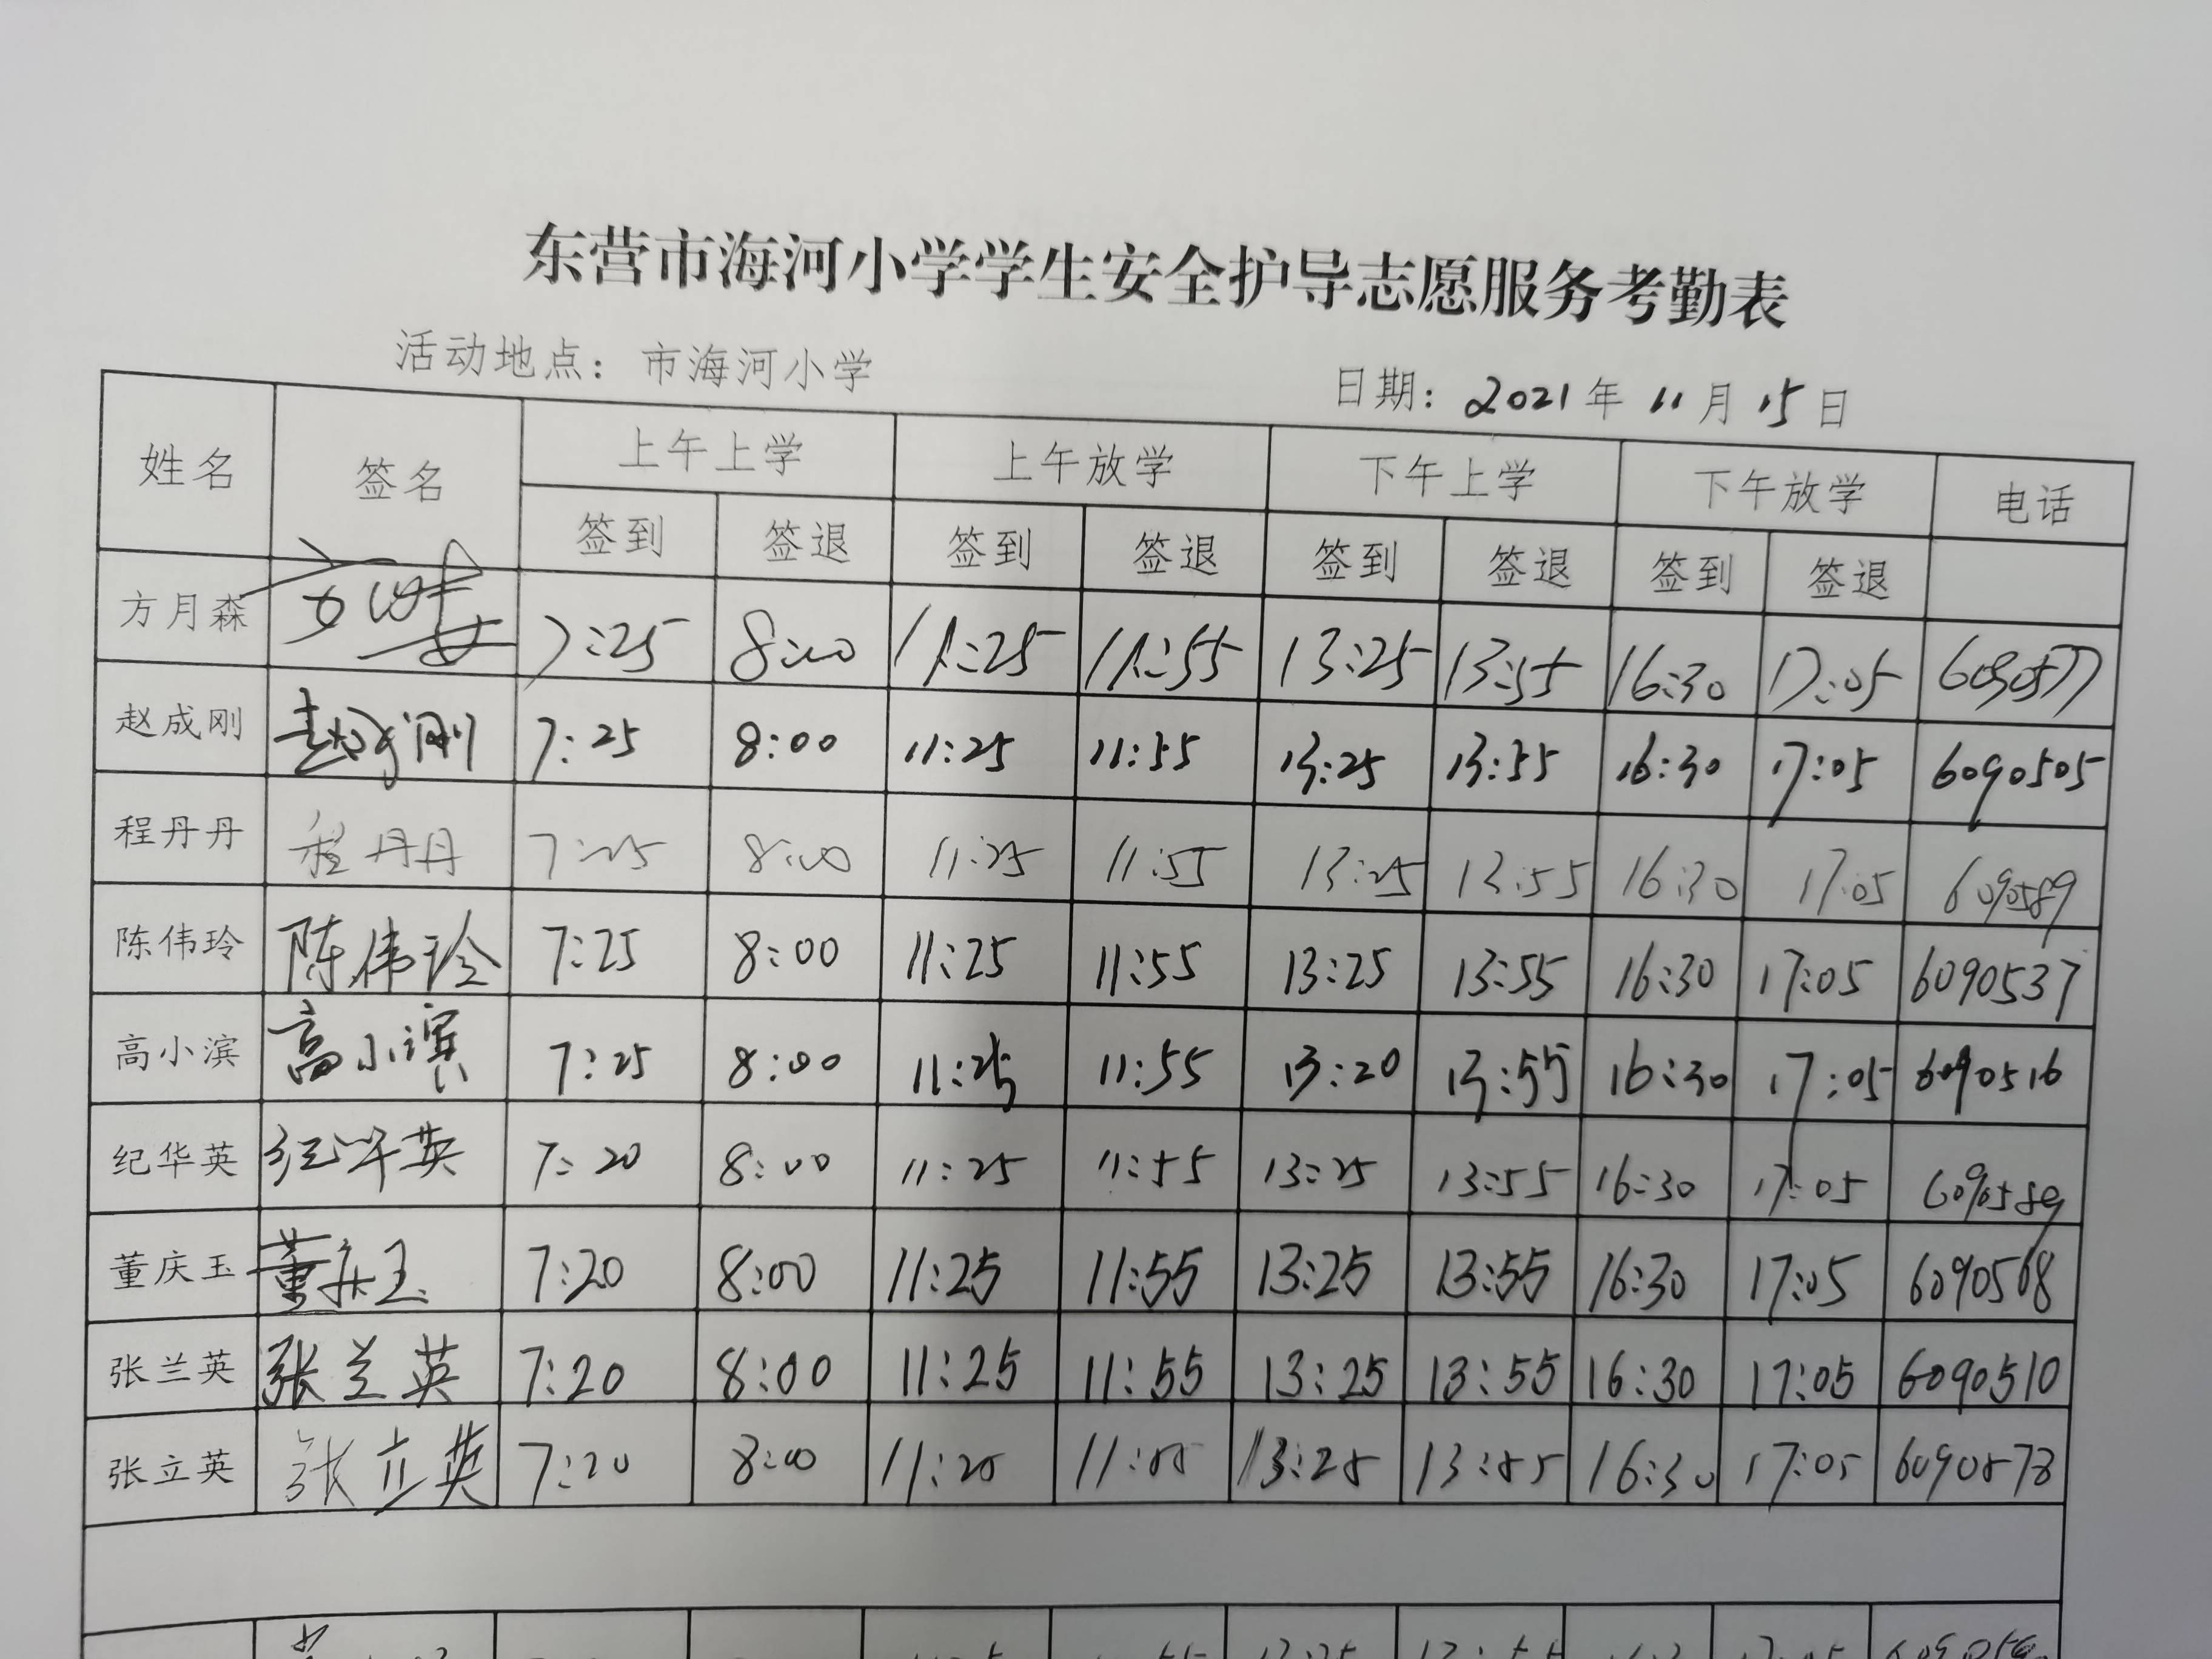 东营市海河小学学生安全护导志愿服务考勤表
活动地点：市海河小学 日期：2021年11月15日
姓名 签名 上午上学 上午放学 下午上学 下午放学 电话
签到 签退 签到 签退 签到 签退 签到 签退
方月森 7:25 8:00 11:25 11:55 13:25 13:55 16:30 17:05 6090577
赵成刚 赵成刚 7:25 8:00 11:25 11:55 13:25 13:55 16:30 17:05 6090505
程丹丹 程丹丹 7:25 8:00 11:25 11:55 13:25 13:55 16:30 17:05 6090589
陈伟玲 陈伟玲 7:25 8:00 11:25 11:55 13:25 13:55 16:30 17:05 6090537
高小滨 高小滨 7:25 8:00 11:25 11:55 13:20 13:55 16:30 17:05 6090516
纪华英 纪华英 7:20 8:00 11:25 11:55 13:25 13:55 16:30 17:05 6090589
董庆玉 董庆玉 7:20 8:00 11:25 11:55 13:25 13:55 16:30 17:05 6090568
张兰英 张兰英 7:20 8:00 11:25 11:55 13:25 13:55 16:30 17:05 6090510
张立英 张立英 7:20 8:00 11:25 11:55 13:25 13:55 16:30 17:05 6090573